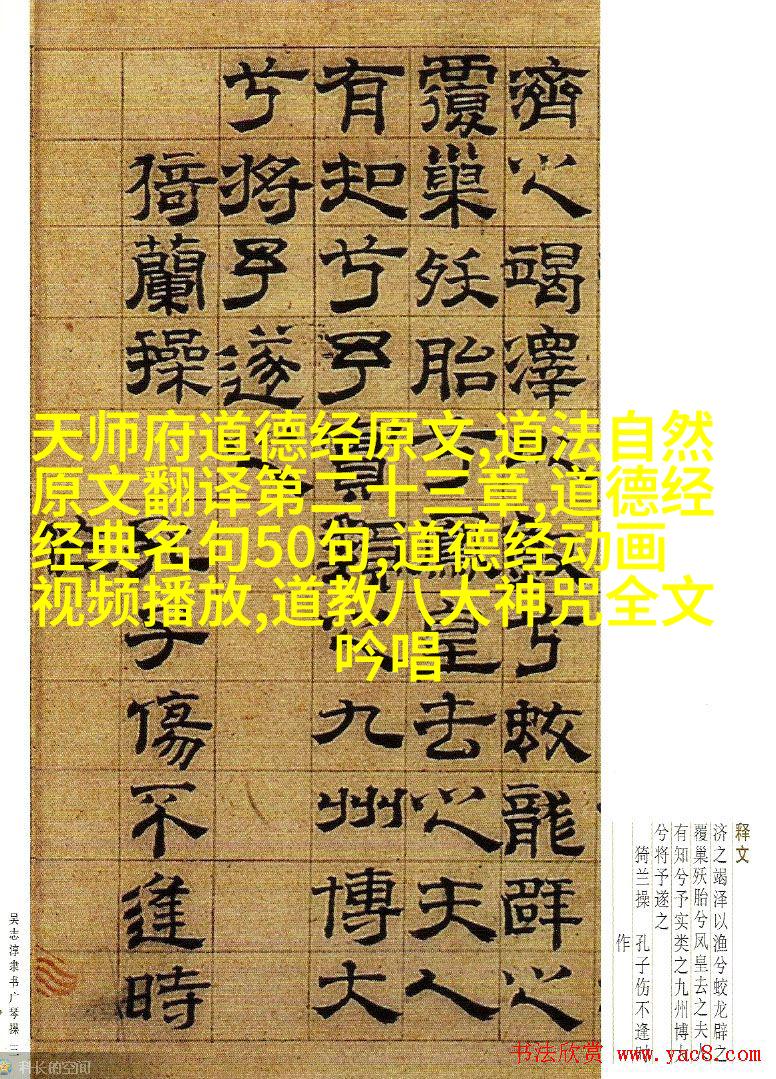 濟之竭澤兮蛟龍辟之
覆巢殀胎兮鳳皇去之夫人
有知兮予實類九州博大
兮將予遂之
猗蘭操 子傷不逢時
天师府道德经原文,道法自然
原文翻译第二十三章,道德经
经典名句50句,道德经动画
视频播放,道教八大神咒全文
吟唱
释文
济之竭泽以渔兮蛟龙辟之
覆巢殀胎兮凤皇去之夫
有知兮予实类之九州博
兮将予遂之
猗兰操 孔子伤不逢
作
吴志淳隶书广琴操 三
科长的空间
书法欣赏 www.yac8.com